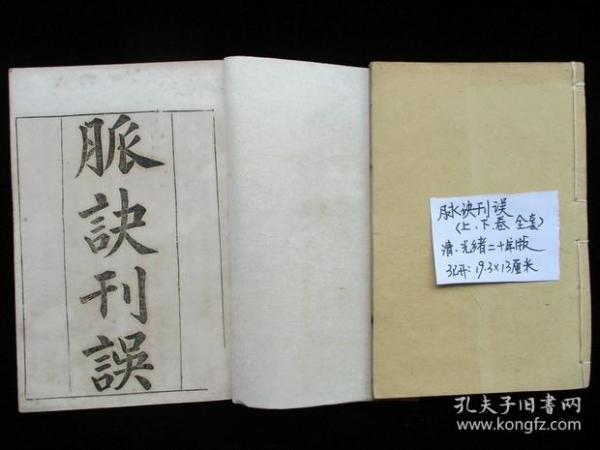 脈訣刊誤
脉诀刊误
(上、下卷 全套)
清、光緒二十年版
32开: 19.3×13厘米
孔夫子旧书网
www.kongfz.com